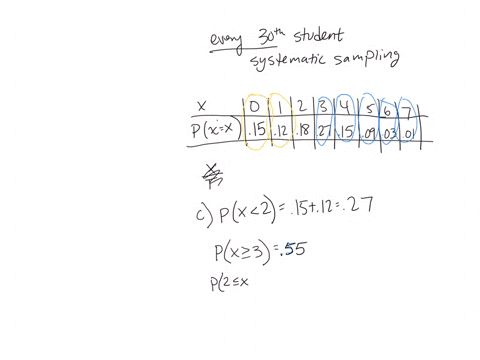 every 30th student
systematic sampling
x 0 1 2 3 4 5 6 7
P(x=x) .15 .12 .18 .27 .15 .09 .03 .01
c) P(x<2) = .15+.12=.27
P(x≥3) = .55
P(2≤x